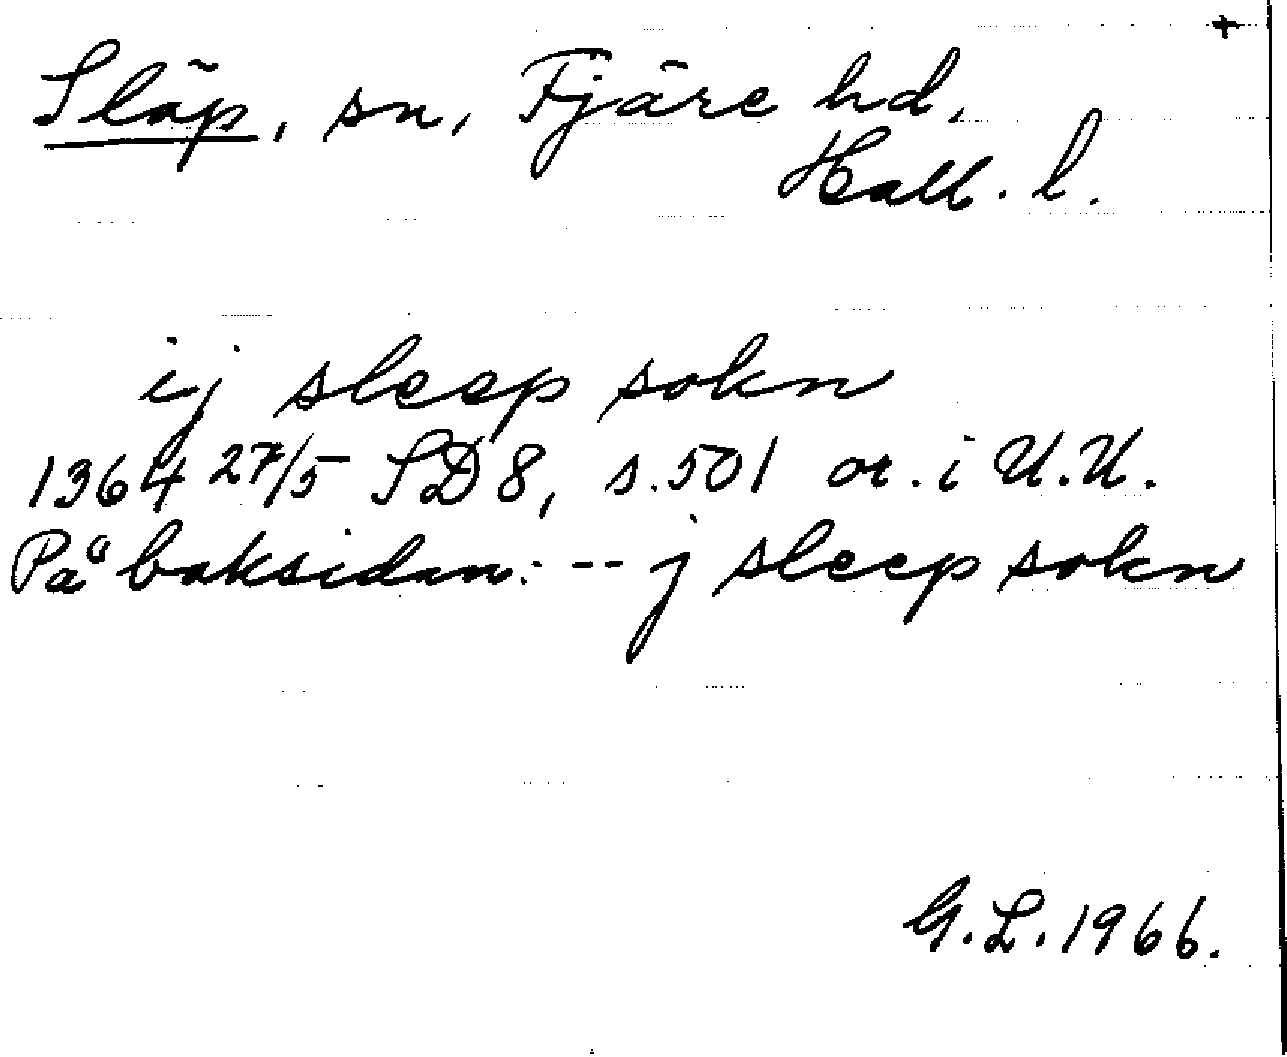 +
Släp, sn, Fjäre hd,
Hall. l.
ij sleep sokn
1364 27/5 SD 8, s. 501 or. i U.U.
På baksidan: -- j sleep sokn
G.L. 1966.